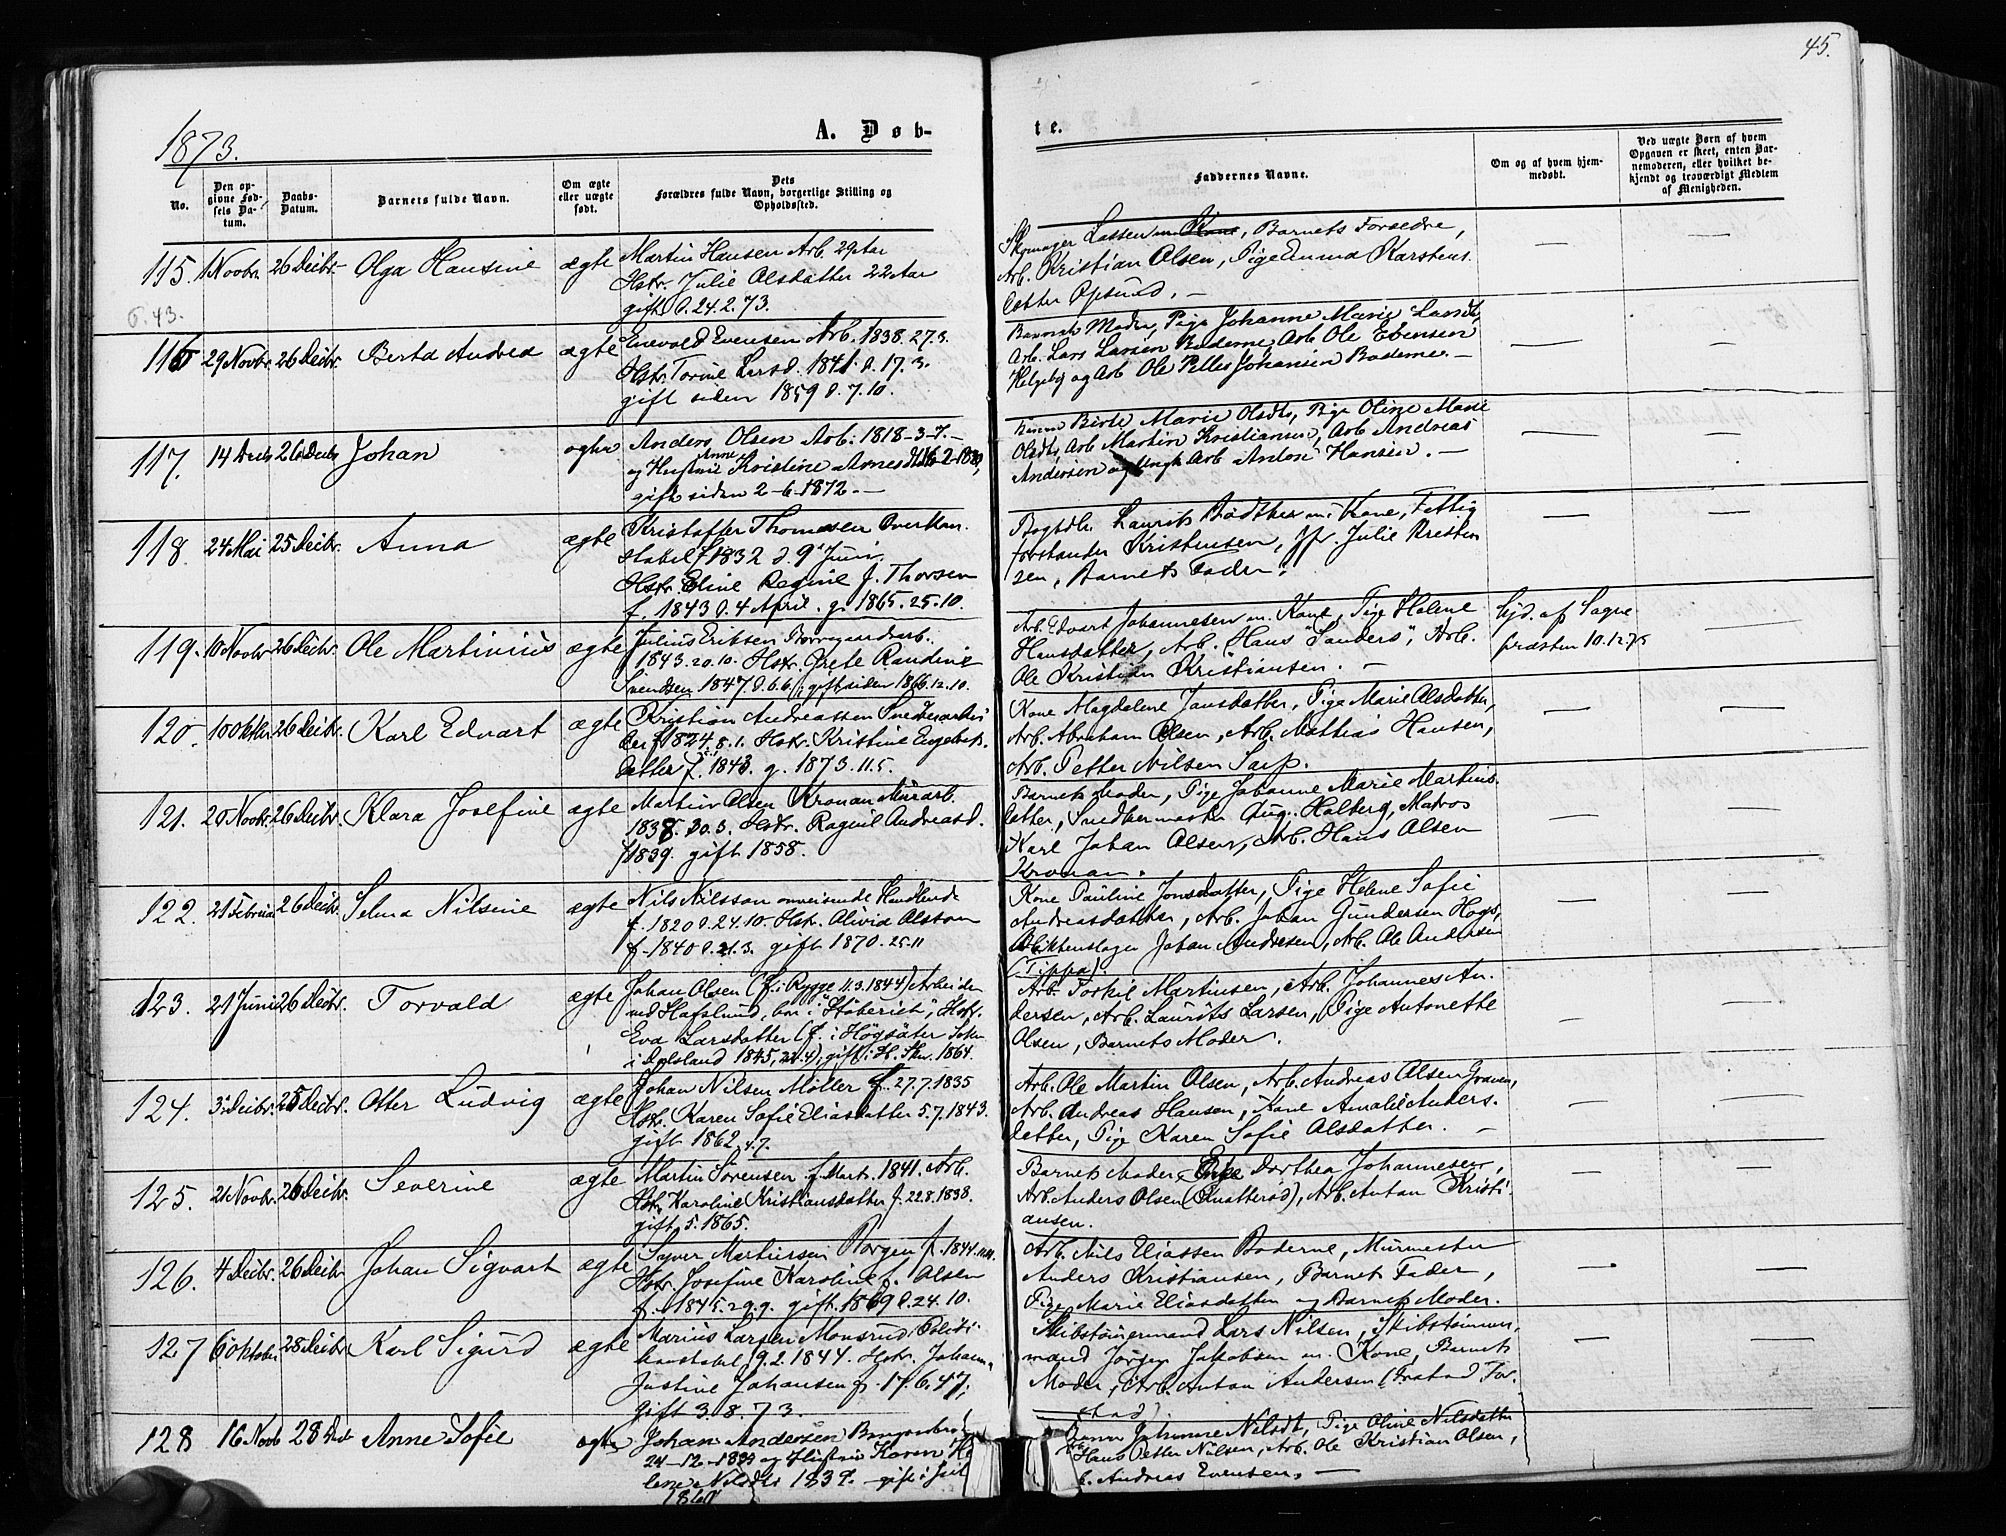 45.
1873.
A. Døb-
te.
No.
Den op-
givne Fød-
sels Da-
tum.
Daabs-
Datum.
Barnets fulde Navn.
Om ægte
eller uægte
født.
Dets
Forældres fulde Navn, borgerlige Stilling og
Opholdssted.
Faddernes Navne.
Om og af hvem hjem-
medøbt.
Ved uægte Børn af hvem
Opgaven er skeet, enten Bar-
nemoderen, eller hvilket be-
kjendt og troværdigt Medlem
af Menigheden.
115. 1 Novbr. 26 Decbr. Olga Hansine ægte
Martin Hansen Arb. 29 Aar
Hstr. Julie Olsdatter 22 Aar
gift d. 24.2.73.
Skomager Lassen m. Kone, Barnets Forældre,
Arb. Kristian Olsen, Pige Emma Karstens
datter Opsund. —
6.43.
116 29 Novbr. 26 Decbr. Berta Andrea ægte
Enevold Evensen Arb. 1838.27.3.
Hstr. Torine Larsd. 1841 d. 17.3.
gift siden 1859 d. 7.10.
Barnets Moder, Pige Johanne Marie Larsdt,
Arb. Lars Larsen Boderne, Arb Ole Ebensen
Helgeby og Arb Ole Pelles Johansen Boderne. —
117. 14 Decb 26 Decb Johan ægte
Anders Olsen Arb. 1818-3-7. —
og Hustru Anne Kristine Arnesdtr
gift siden 2-6-1872. —
Birte Marie Olsdt, Pige Oline Marie
Olsdt, Arb Martin Kristiansen, Arb Andreas
Andersen og Ungk Arb Anton Hansen. —
118. 24 Mai 25 Decbr. Anna ægte
Kristoffer Thomesen Overkon
stabel f 1832 d 9 Juni
Hstr. Eline Regine f. Thorsen
f. 1843 d. 4 April. g. 1865.25.10.
Laurits Bødtker m. Kone, Fattig
forstander Kristensen, Jfr. Julie Kresten
sen, Barnets Fader.
119. 10 Novbr 26 Decbr. Ole Martinius ægte
Julius Eriksen Borregaardsarb.
1843.20.10. Hstr. Grete Randine
Svendsen 1847. d. 6.6., gift siden 1866.12.10.
Arb. Edvart Johannesen m. Kone, Pige Helene
Hansdatter, Arb. Hans "Sanders", Arb.
Ole Kristian Kristiansen. —
hjd. af Sogne
præsten 10.12.73
120. 10 Oktbr 26 Decbr. Karl Edvart ægte
Kristian Andreassen Snedkerarbei
der f 1824.8.1. Hstr. Kristine Engebrets
datter f. 1843. g. 1873.11.5.
Kone Magdalene Jansdatter, Pige Marie Olsdatter,
Arb. Abraham Olsen, Arb. Mattias Hansen,
Arb. Petter Nilsen Sarp.
121. 20 Novbr. 26 Decbr. Klara Josefine ægte
Martin Olsen Kronan Murarb.
1838.30.3. Hstr. Ragnil Andreasd.
f 1839. gift 1858.
Barnets Moder, Pige Johanne Marie Martins
datter, Snedkermester Aug. Halberg, Matros
Karl Johan Olsen, Arb. Hans Olsen
Kronan.
122. 21 Februar 26 Decbr. Selma Nilsine ægte
Nils Nilsson omreisende Handlende
f. 1820 d. 24.10. Hstr. Olivia Olsson
f. 1840 d. 21.3. gift 1870.25.11
Kone Pauline Jonsdatter, Pige Helene Sofie
Andreasdatter, Arb. Johan Gundersen Hogs,
Blikkenslager Johan Andresen, Arb. Ole Andersen
(Tippa).
123. 21 Juni 26 Decbr. Torvald ægte
Johan Olsen (f. i Rygge 11.3.1844) Arbeider
ved Hafslund, bor i "Støberiet", Hstr.
Eva Larsdatter (f. i Högsäter Sokn
i Dalsland 1845, 21.4), gift i H. Skn. 1864.
Arb. Torkil Martinsen, Arb. Johannes An-
dersen, Arb. Laurits Larsen, Pige Antonette
Olsen, Barnets Moder.
124. 3 Decbr. 25 Decbr. Otter Ludvig ægte
Johan Nilsen Møller f. 27.7.1835
Hstr. Karen Sofie Eliasdatter 5.7.1843.
gift 1862.4.7.
Arb. Ole Martin Olsen, Arb. Andreas Olsen Graven,
Arb. Andreas Hansen, Kone Amalie Anders.
datter, Pige Karen Sofie Olsdatter. —
125. 21 Novbr. 26 Decbr. Severine ægte
Martin Sørensen f. Marts 1841. Arb.
Hstr. Karoline Kristiansdatter f. 22.8.1838.
gift 5.1865.
Barnets Moder, Enke Dorthea Johannesen,
Arb. Anders Olsen (Knatterød), Arb. Anton Kristi-
ansen.
126. 4 Decbr. 26 Decbr Johan Sigvart ægte
Syver Martinsen Borgen f. 1844.11.11.
Hstr. Josefine Karoline f. Olsen
f. 1845.29.9. gift. 1869 d. 24.10.
Arb. Nils Eliassen Boderne, Murmester
Anders Kristiansen, Barnets Fader,
Pige Marie Eliasdatter og Barnets Moder.
127 6 Oktober 28 Decbr Karl Sigurd ægte
Marius Larsen Monsrud, Politi-
konstabel 19.2.1844. Hstr. Johanne
Justine Johansen f. 17.6.47;
gift 3.8.73.
Skibstømmermand Lars Nilsen, Skibstømmer-
mand Jørgen Jakobsen m. Kone, Barnets
Moder, Arb. Anton Andersen (Frastad Tor-
stad)
128 16 Novb 28 Decb Anne Sofie ægte
Johan Andersen
24-12-1839 og Hustru Karen He
lene Nilsdtr 1837. — gift i Juli
1860
Johanne Nilsdt, Pige Oline Nilsdatter
Hans Petter Nilsen, Arb. Ole Kristian Olsen,
Andreas Evensen. —